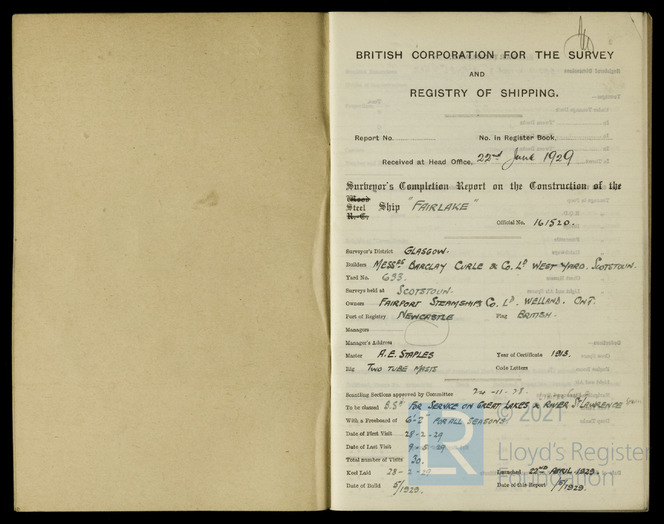 BRITISH CORPORATION FOR THE SURVEY
AND
REGISTRY OF SHIPPING.
Report No.
No. in Register Book.
Received at Head Office, 22nd June 1929
Surveyor's Completion Report on the Construction of the
Wood
Steel Ship "FAIRLAKE"
R.-C.
Official No. 161520.
Surveyor's District GLASGOW.
Builders MESSRS BARCLAY CURLE & CO. LD WEST YARD. SCOTSTOUN.
Yard No. 633.
Surveys held at SCOTSTOUN.
Owners FAIRPORT STEAMSHIPS CO. LD. WELLAND. ONT.
Port of Registry NEWCASTLE Flag BRITISH.
Managers
Manager's Address
Master A.E. STAPLES Year of Certificate 1913.
Rig TWO TUBE MASTS Code Letters
Scantling Sections approved by Committee 24-11-28.
To be classed B.S* FOR SERVICE ON GREAT LAKES & RIVER ST LAWRENCE
With a Freeboard of 6'-2" FOR ALL SEASONS.
Date of First Visit 28-2-29
Date of Last Visit 9-5-29
Total number of Visits 30.
Keel Laid 28-2-29 Launched 22ND APRIL 1929.
Date of Build 5/1929. Date of this Report /5/1929.
LR
© 2021
Lloyd's Register
Foundation